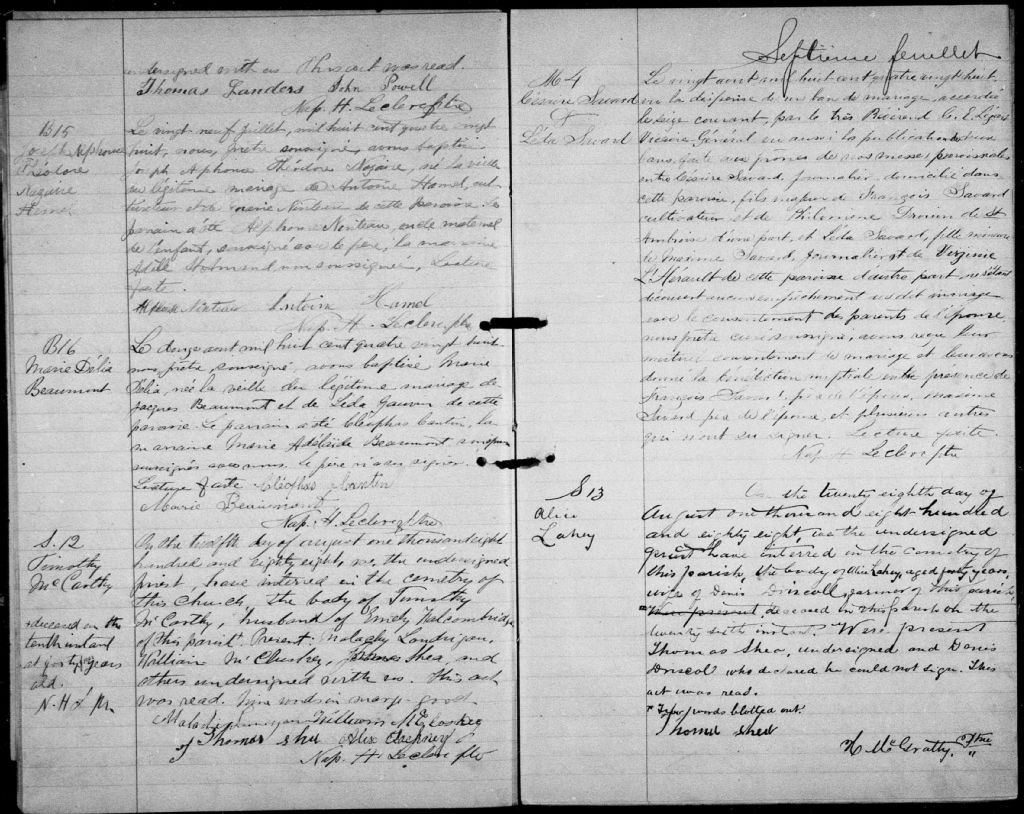 undersigned with us This act was read.
Thomas Landers John Powell
Nap. H. Leclerc ptre
B15
Joseph Alphonse
Théodore
Nazaire
Hamel
Le vingt neuf juillet, mil huit cent quatre vingt
huit, nous, prêtre soussigné, avons baptisé
Joseph Alphonse Théodore Nazaire, né la veille
du légitime mariage de Antoine Hamel, cul
tivateur et de Marie Nonteau de cette paroisse. Le
parrain a été Alphonse Nonteau, oncle maternel
de l'enfant, soussigné avec le père, la marraine
Adèle non soussignée. Lecture
faite.
Alphonse Nonteau Antoine Hamel
Nap. H. Leclerc ptre
B16
Marie Délia
Beaumont
Le douze aout mil huit cent quatre vingt huit
nous, prêtre, soussigné, avons baptisé Marie
Délia, née la veille du légitime mariage de
Jacques Beaumont et de Léda Gauvin de cette
paroisse. Le parrain a été Cléophas Cantin, la
marraine Marie Adélaïde Beaumont
soussignés avec nous. Le père n'a su signer.
Lecture faite Cléophas Cantin
Marie Beaumont
Nap. H. Leclerc ptre
S. 12
Timothy
McCarthy
deceased on the
tenth instant
at forty years
old.
N. H. L. ptr.
On the twelfth day of august one thousand eight
hundred and eighty eight, we, the undersigned
priest, have interred in the cemetry of
this Church, the body of Timothy
McCarthy, husband of Emely Falcombridge
of this parish. Present. Malachy Landrigan,
William McClusky, James Shea, and
others undersigned with us. This act
was read. Nine words in marge good.
William McCloskey
Thomas Shea Alex
Nap. H. Leclerc ptre
Septième feuillet
M4
Césaire Savard
&
Léda Savard
Le vingt aout mil huit cent quatre vingt huit
vu la dispense de un ban de mariage, accordée
le seize courant, par le très Révérend C. E. Légaré
Vicaire Général vu aussi la publication de deux
bans, faite au prones de nos messes paroissiales
entre Césaire Savard, journalier domicilié dans
cette paroisse, fils majeur de François Savard
cultivateur et de Philomène Drouin de St
Ambroise d'une part, et Léda Savard, fille mineure
de Maxime Savard, journalier et de Virginie
L'Hérault de cette paroisse d'autre part, ne s'étant
découvert aucun empêchement au dit mariage
avec le consentement des parents de l'épouse
nous prêtre curé soussigné, avons reçu leur
mutuel consentement de mariage et leur avons
donné la bénédiction nuptiale en présence de
François Savard, père de l'époux, Maxime
Savard père de l'épouse, et plusieurs autres
qui n'ont su signer. Lecture faite.
Nap. H. Leclerc ptre
S13
Alice
Lahey
On the twenty eighth day of
August one thousand eight hundred
and eighty eight, we the undersigned
priest have interred in the cemetry of
this parish, the body of Alice Lahey, aged forty years,
wife of Denis Driscoll, farmer of this parish,
deceased in this parish on the
twenty sixth instant. Were present
Thomas Shea, undersigned and Denis
Driscol who declared he could not sign. This
act was read.
* Few words blotted out.
Thomas Shea
H. McGratty, Ptre